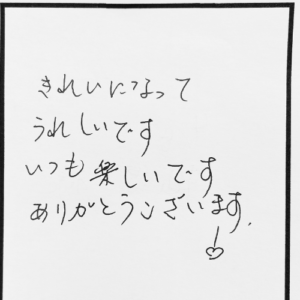 きれいになって
うれしいです
いつも楽しいです
ありがとうございます.